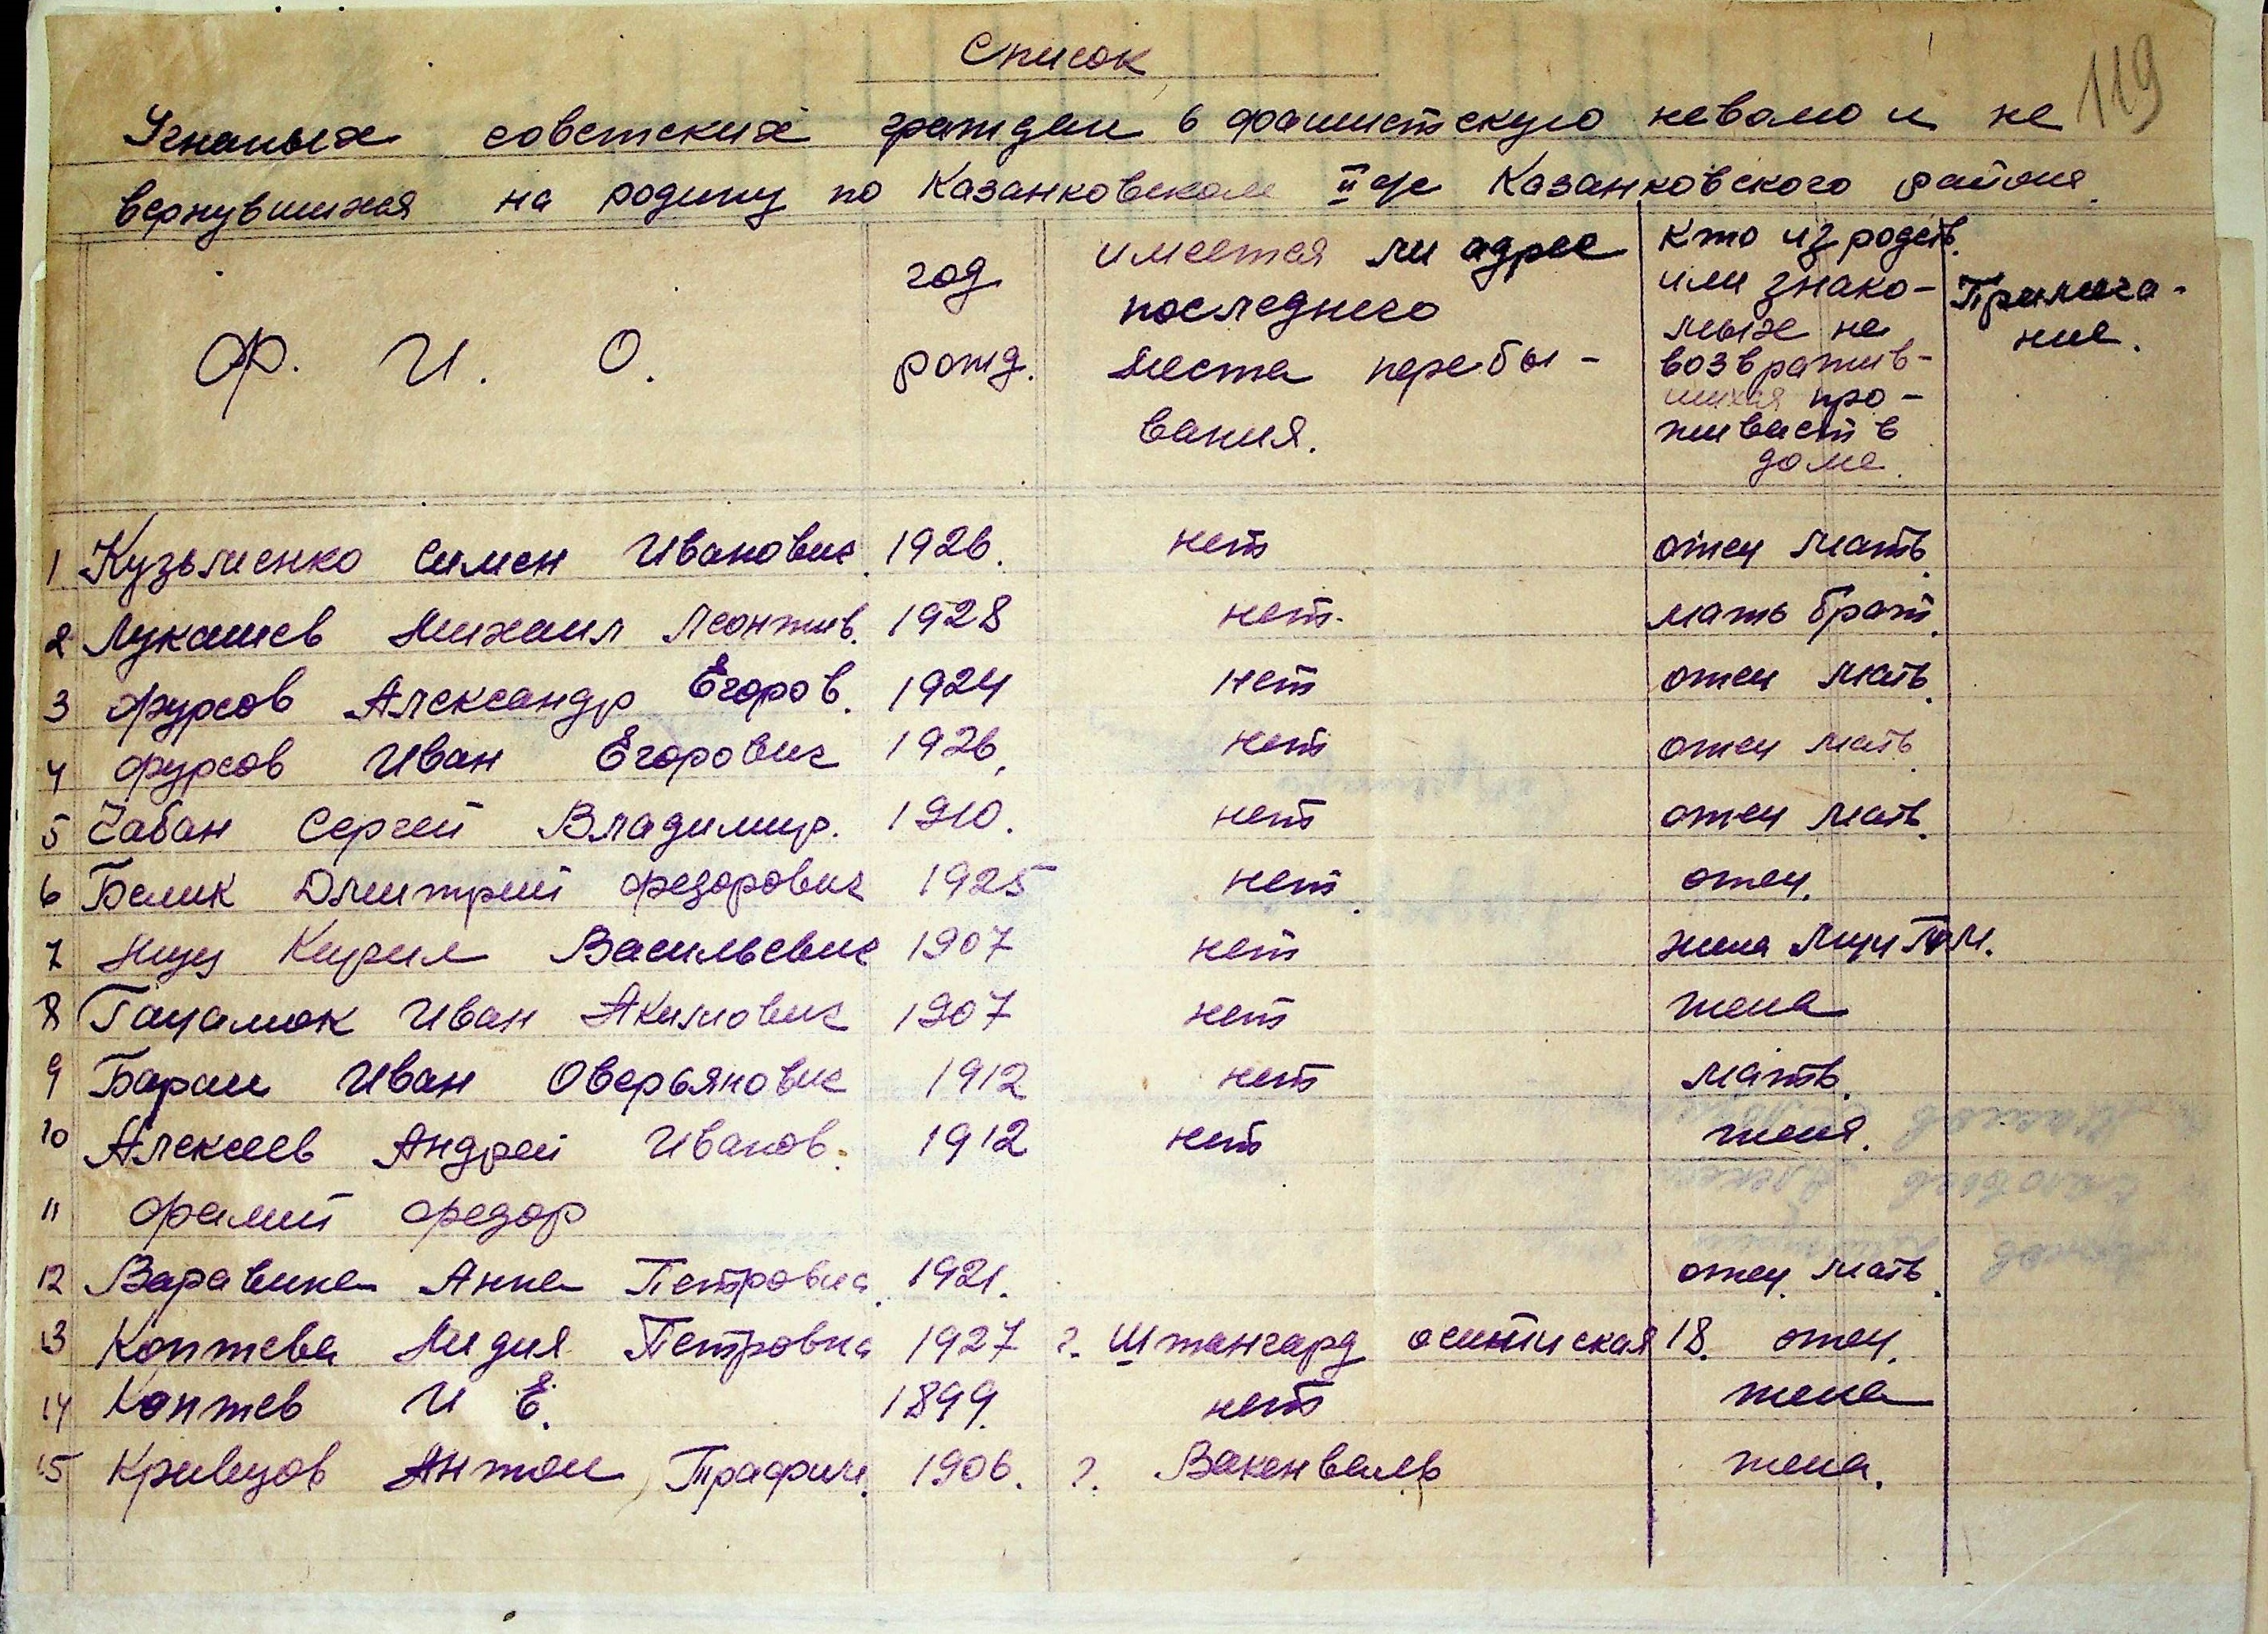 119
Список
Угнаных советских граждан в фашистскую неволю и не
вернувшихся на родину по Казанковском II с/с Казанковского района.
Ф. И. О.
год рожд.
имеется ли адрес
последнего
места перебы-
вания.
Кто из родств.
или знако-
мых не
возвратив-
шихся про-
живает в
доме.
Примеча-
ние.
1 Кузьменко Симен Иванович 1926. нет отец мать.
2 Лукашев Михаил Леонтив. 1928 нет. мать брат.
3 Фурсов Александр Егоров. 1924 нет отец мать.
4 Фурсов Иван Егорович 1926. нет отец мать.
5 Чабан Сергей Владимир. 1910. нет отец мать.
6 Белик Дмитрий Федорович 1925 нет. отец.
7 Кирил Васильевич 1907 нет
8 Иван Акимович 1907 нет жена
9 Баран Иван Оверьянович 1912 нет мать.
10 Алексеев Андрей Иванов. 1912 нет жена.
11 Федор
12 Варавина Анна Петровна. 1921. отец. мать.
13 Коптева Лидия Петровна 1927 г. Штангард 18. отец.
14 Коптев И Е. 1899. нет жена
15 Кривцов Антон Трафим. 1906. г. жена.